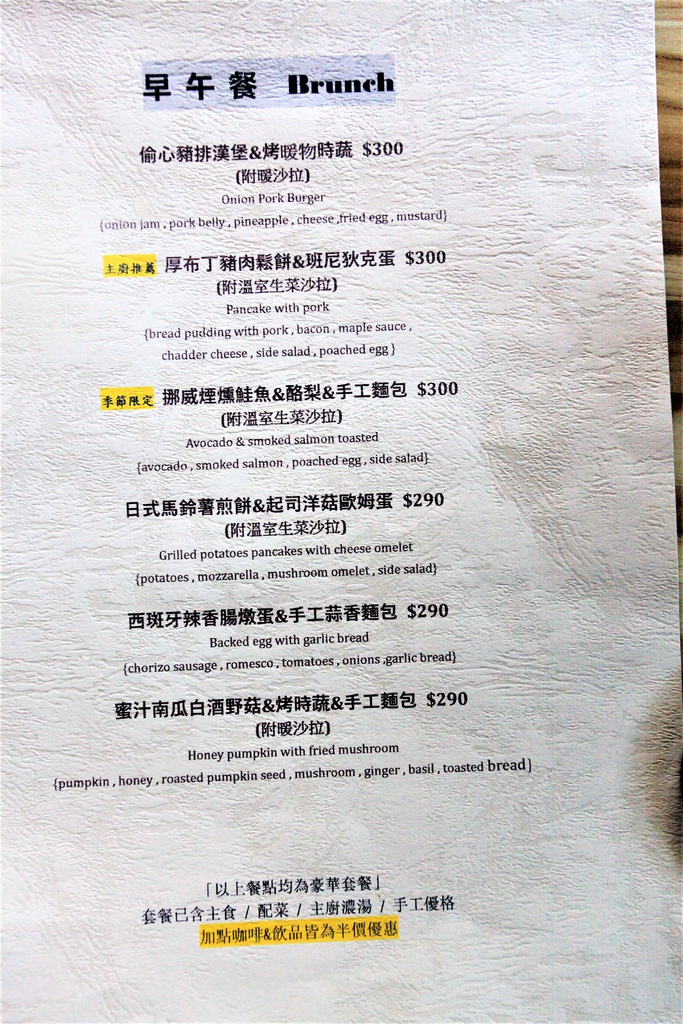 早午餐 Brunch
偷心豬排漢堡&烤暖物時蔬 $300
(附暖沙拉)
Onion Pork Burger
{onion jam , pork belly , pineapple , cheese ,fried egg , mustard}
主廚推薦 厚布丁豬肉鬆餅&班尼狄克蛋 $300
(附溫室生菜沙拉)
Pancake with pork
{bread pudding with pork , bacon , maple sauce ,
chadder cheese , side salad , poached egg }
季節限定 挪威煙燻鮭魚&酪梨&手工麵包 $300
(附溫室生菜沙拉)
Avocado & smoked salmon toasted
{avocado , smoked salmon , poached egg , side salad}
日式馬鈴薯煎餅&起司洋菇歐姆蛋 $290
(附溫室生菜沙拉)
Grilled potatoes pancakes with cheese omelet
{potatoes , mozzarella , mushroom omelet , side salad}
西班牙辣香腸燉蛋&手工蒜香麵包 $290
Backed egg with garlic bread
{chorizo sausage , romesco , tomatoes , onions ,garlic bread}
蜜汁南瓜白酒野菇&烤時蔬&手工麵包 $290
(附暖沙拉)
Honey pumpkin with fried mushroom
{pumpkin , honey , roasted pumpkin seed , mushroom , ginger , basil , toasted bread}
「以上餐點均為豪華套餐」
套餐已含主食 / 配菜 / 主廚濃湯 / 手工優格
加點咖啡&飲品皆為半價優惠